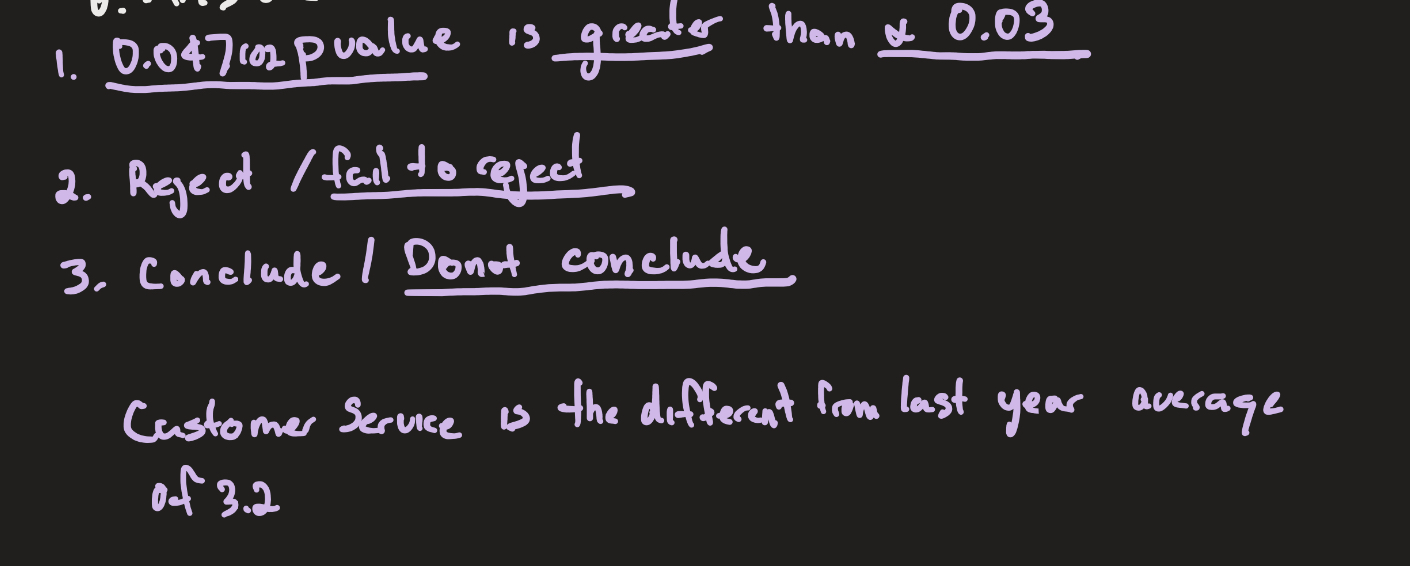 1. 0.047102 p value is greater than α 0.03
2. Reject / fail to reject
3. Conclude / Donot conclude
Customer Service is the different from last year average
of 3.2